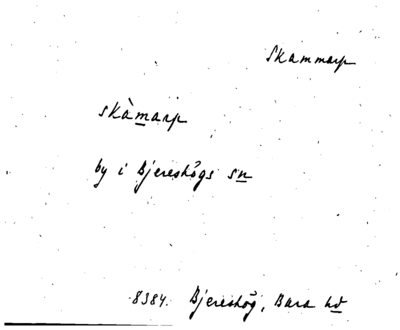 Skammarp
skàmarp
by i Bjereshögs sn
8384. Bjereshög, Bara hd